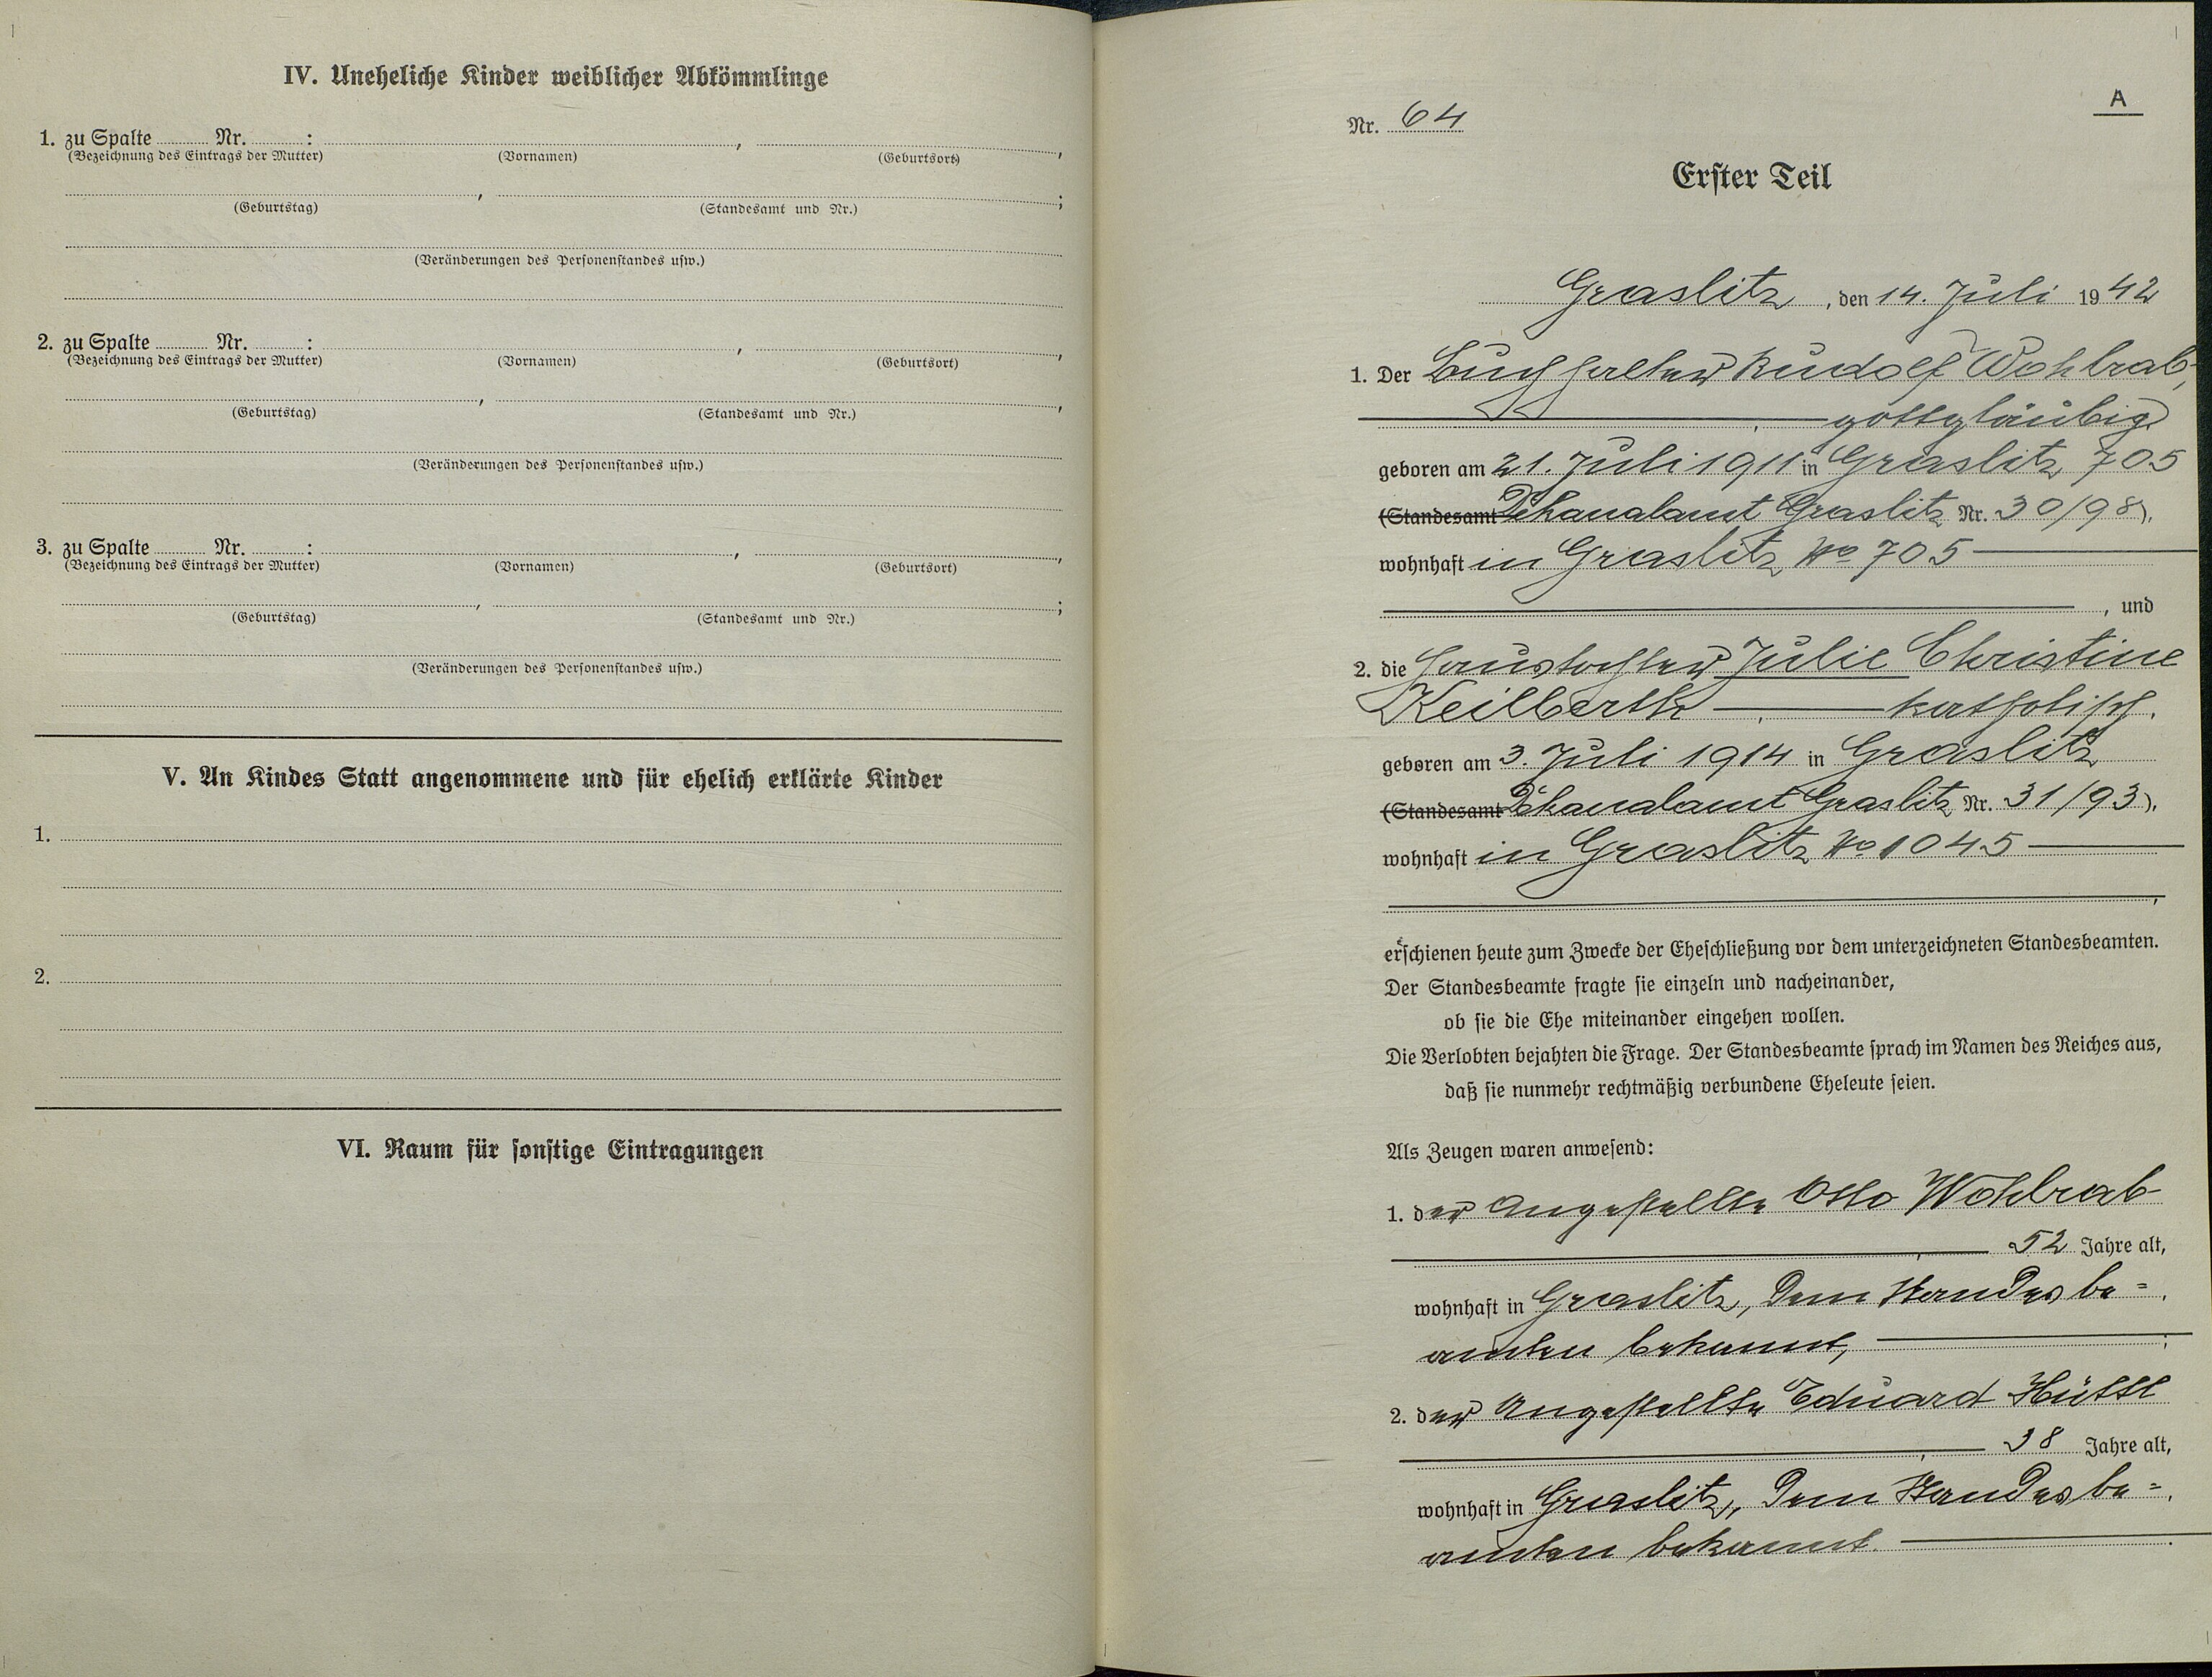 IV. Uneheliche Kinder weiblicher Abkömmlinge
1. zu Spalte ........ Nr. ........ :
(Bezeichnung des Eintrags der Mutter) (Vornamen) (Geburtsort)
(Geburtstag) (Standesamt und Nr.)
(Veränderungen des Personenstandes usw.)
2. zu Spalte ........ Nr. ........ :
(Bezeichnung des Eintrags der Mutter) (Vornamen) (Geburtsort)
(Geburtstag) (Standesamt und Nr.)
(Veränderungen des Personenstandes usw.)
3. zu Spalte ........ Nr. ........ :
(Bezeichnung des Eintrags der Mutter) (Vornamen) (Geburtsort)
(Geburtstag) (Standesamt und Nr.)
(Veränderungen des Personenstandes usw.)
V. An Kindes Statt angenommene und für ehelich erklärte Kinder
1.
2.
VI. Raum für sonstige Eintragungen
A
Nr. 64
Erster Teil
Graslitz, den 14. Juli 1942
1. Der Buchhalter Rudolf Wohlrab,
gottgläubig
geboren am 21. Juli 1911 in Graslitz 705
(Standesamt Dekanalamt Graslitz Nr. 30/98),
wohnhaft in Graslitz No 705
, und
2. die Haustochter Julie Christine
Keilberth katholisch,
geboren am 3. Juli 1914 in Graslitz
(Standesamt Dekanalamt Graslitz Nr. 31/93),
wohnhaft in Graslitz No 1045
erschienen heute zum Zwecke der Eheschließung vor dem unterzeichneten Standesbeamten.
Der Standesbeamte fragte sie einzeln und nacheinander,
ob sie die Ehe miteinander eingehen wollen.
Die Verlobten bejahten die Frage. Der Standesbeamte sprach im Namen des Reiches aus,
daß sie nunmehr rechtmäßig verbundene Eheleute seien.
Als Zeugen waren anwesend:
1. der Angestellte Otto Wohlrab
52 Jahre alt,
wohnhaft in Graslitz, dem Standesbe=
amten bekannt,
2. der Angestellte Eduard Hüttl
38 Jahre alt,
wohnhaft in Graslitz, dem Standesbe=
amten bekannt.